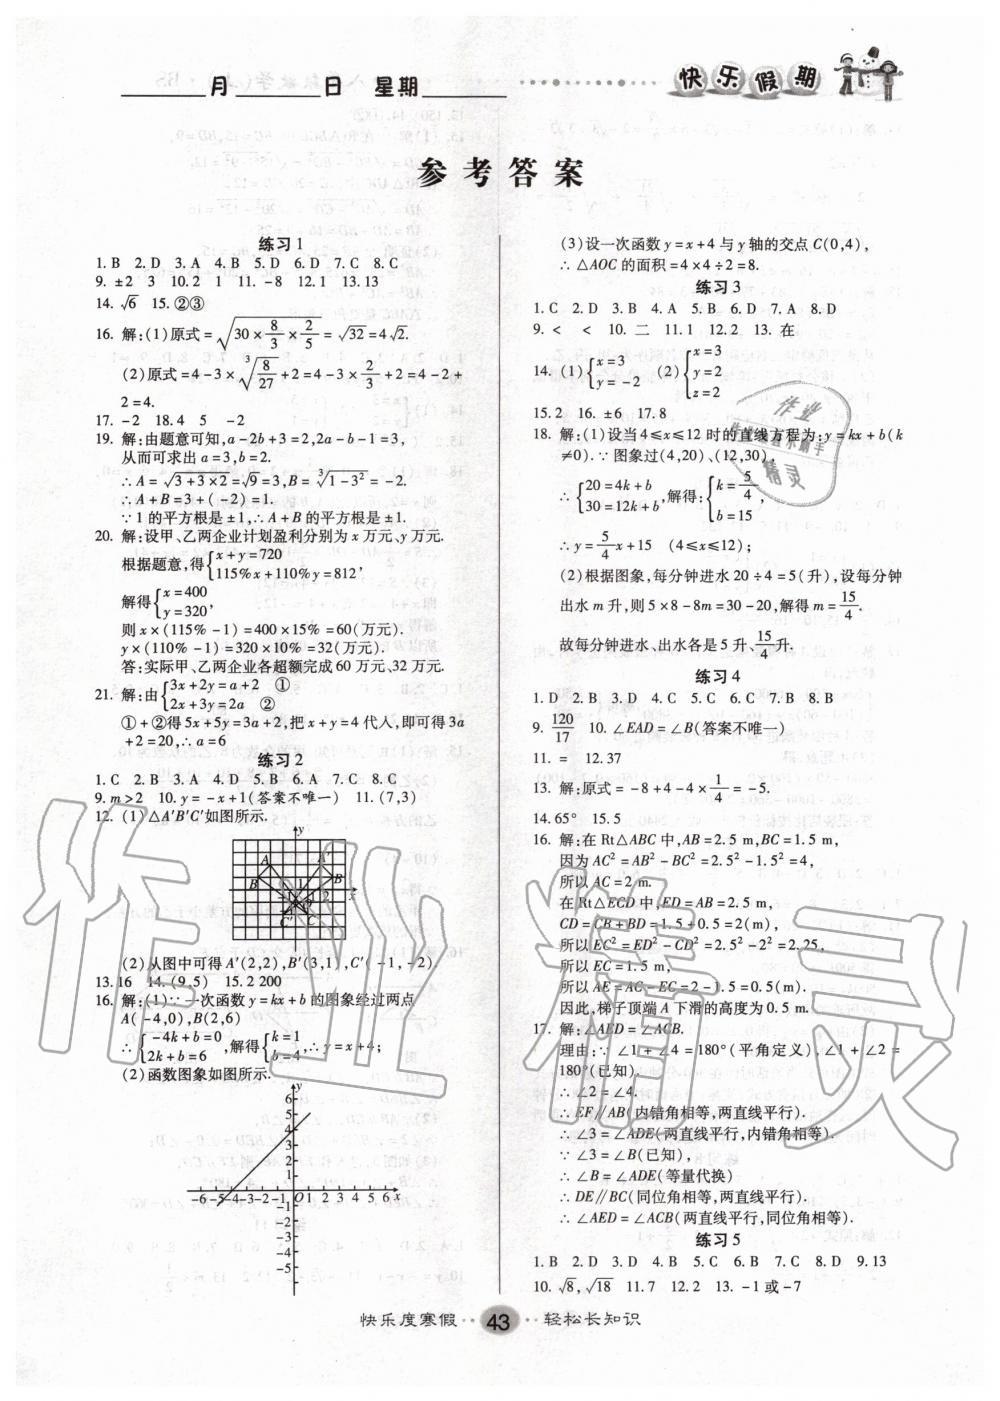 ____月____日 星期____
快乐假期
参考答案
练习1
1. B 2. D 3. A 4. B 5. D 6. D 7. C 8. C
9. ±2 3 10. 2 1 11. -8 12. 1 13. 13
14. √6 15. ②③
16. 解:(1)原式=√(30×8/3×2/5)=√32=4√2.
(2)原式=4-3×∛(8/27)+2=4-3×2/3+2=4-2+
2=4.
17. -2 18. 4 5 -2
19. 解:由题意可知,a-2b+3=2,2a-b-1=3,
从而可求出a=3,b=2.
∴A=√(3+3×2)=√9=3,B=∛(1-3²)=-2.
∴A+B=3+(-2)=1.
∵1的平方根是±1,∴A+B的平方根是±1.
20. 解:设甲、乙两企业计划盈利分别为x万元、y万元.
根据题意,得{x+y=720
115%x+110%y=812,
解得{x=400
y=320,
则x×(115%-1)=400×15%=60(万元).
y×(110%-1)=320×10%=32(万元).
答:实际甲、乙两企业各超额完成60万元、32万元.
21. 解:由{3x+2y=a+2 ①
2x+3y=2a ②
①+②得5x+5y=3a+2,把x+y=4代人,即可得3a
+2=20,∴a=6
练习2
1. C 2. B 3. A 4. D 5. B 6. A 7. C 8. C
9. m>2 10. y=-x+1(答案不唯一) 11. (7,3)
12. (1)△A′B′C′如图所示.
y
A A′
B B′
1
1 2 x
C′ C
(2)从图中可得A′(2,2),B′(3,1),C′(-1,-2).
13. 16 14. (9,5) 15. 2 200
16. 解:(1)∵一次函数y=kx+b的图象经过两点
A(-4,0),B(2,6)
∴{-4k+b=0
2k+b=6,解得{k=1
b=4,∴y=x+4;
(2)函数图象如图所示.
y
6
5
4
3
2
1
-6-5-4-3-2-1 O 1 2 3 4 5 6 x
-1
-2
-3
-4
-5
(3)设一次函数y=x+4与y轴的交点C(0,4),
∴△AOC的面积=4×4÷2=8.
练习3
1. C 2. D 3. B 4. A 5. B 6. D 7. A 8. D
9. < < 10. 二 11. 1 12. 2 13. 在
14. (1){x=3
y=-2 (2){x=3
y=2
z=2
15. 2 16. ±6 17. 8
18. 解:(1)设当4≤x≤12时的直线方程为:y=kx+b(k
≠0).∵图象过(4,20)、(12,30),
∴{20=4k+b
30=12k+b,解得:{k=5/4
b=15,
∴y=5/4x+15 (4≤x≤12);
(2)根据图象,每分钟进水20÷4=5(升),设每分钟
出水m升,则5×8-8m=30-20,解得m=15/4.
故每分钟进水、出水各是5升、15/4升.
练习4
1. D 2. B 3. D 4. C 5. C 6. C 7. B 8. B
9. 120/17 10. ∠EAD=∠B(答案不唯一)
11. = 12. 37
13. 解:原式=-8+4-4×1/4=-5.
14. 65° 15. 5
16. 解:在Rt△ABC中,AB=2.5 m,BC=1.5 m,
因为AC²=AB²-BC²=2.5²-1.5²=4,
所以AC=2 m.
在Rt△ECD中,ED=AB=2.5 m,
CD=CB+BD=1.5+0.5=2(m),
所以EC²=ED²-CD²=2.5²-2²=2.25,
所以EC=1.5 m,
所以AE=AC-EC=2-1.5=0.5(m).
因此,梯子顶端A下滑的高度为0.5 m.
17. 解:∠AED=∠ACB.
理由:∵∠1+∠4=180°(平角定义),∠1+∠2=
180°(已知).
∴∠2=∠4.
∴EF∥AB(内错角相等,两直线平行).
∴∠3=∠ADE(两直线平行,内错角相等).
∵∠3=∠B(已知),
∴∠B=∠ADE(等量代换)
∴DE∥BC(同位角相等,两直线平行).
∴∠AED=∠ACB(两直线平行,同位角相等).
练习5
1. B 2. D 3. D 4. B 5. C 6. B 7. C 8. D 9. 13
10. √8,√18 11. 7 12. 2 13. -1或-7
快乐度寒假··43··轻松长知识
作业精灵
作业
精灵